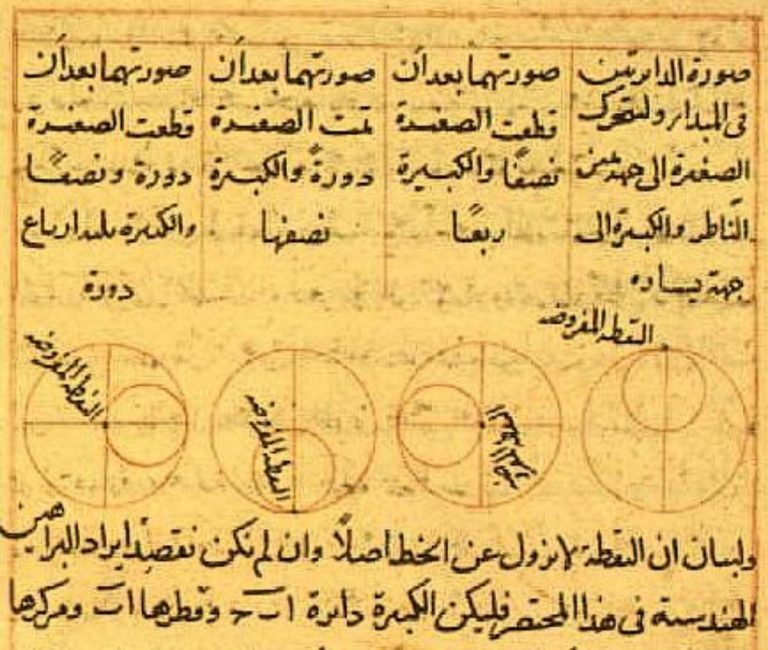 صورة الدايرتين
في المبدا ولتتحرك
الصغيرة الى جهة يمين
الناظر والكبيرة الى
جهة يساره
صورتهما بعد أن
قطعت الصغيرة
نصفًا والكبيرة
ربعًا
صورتهما بعد أن
تمت الصغيرة
دورةً والكبيرة
نصفها
صورتهما بعد أن
قطعت الصغيرة
دورة ونصفًا
والكبيرة ثلثة ارباع
دورة
النقطة المفروضة
النقطة المفروضة
النقطة المفروضة
النقطة المفروضة
ولبيان ان النقطة لا تزول عن الخط اصلاً وان لم نكن نقصد ايراد البراهين
الهندسية في هذا المختصر فليكن الكبيرة دايرة ا ب ج وقطرها ا ب ومركزها